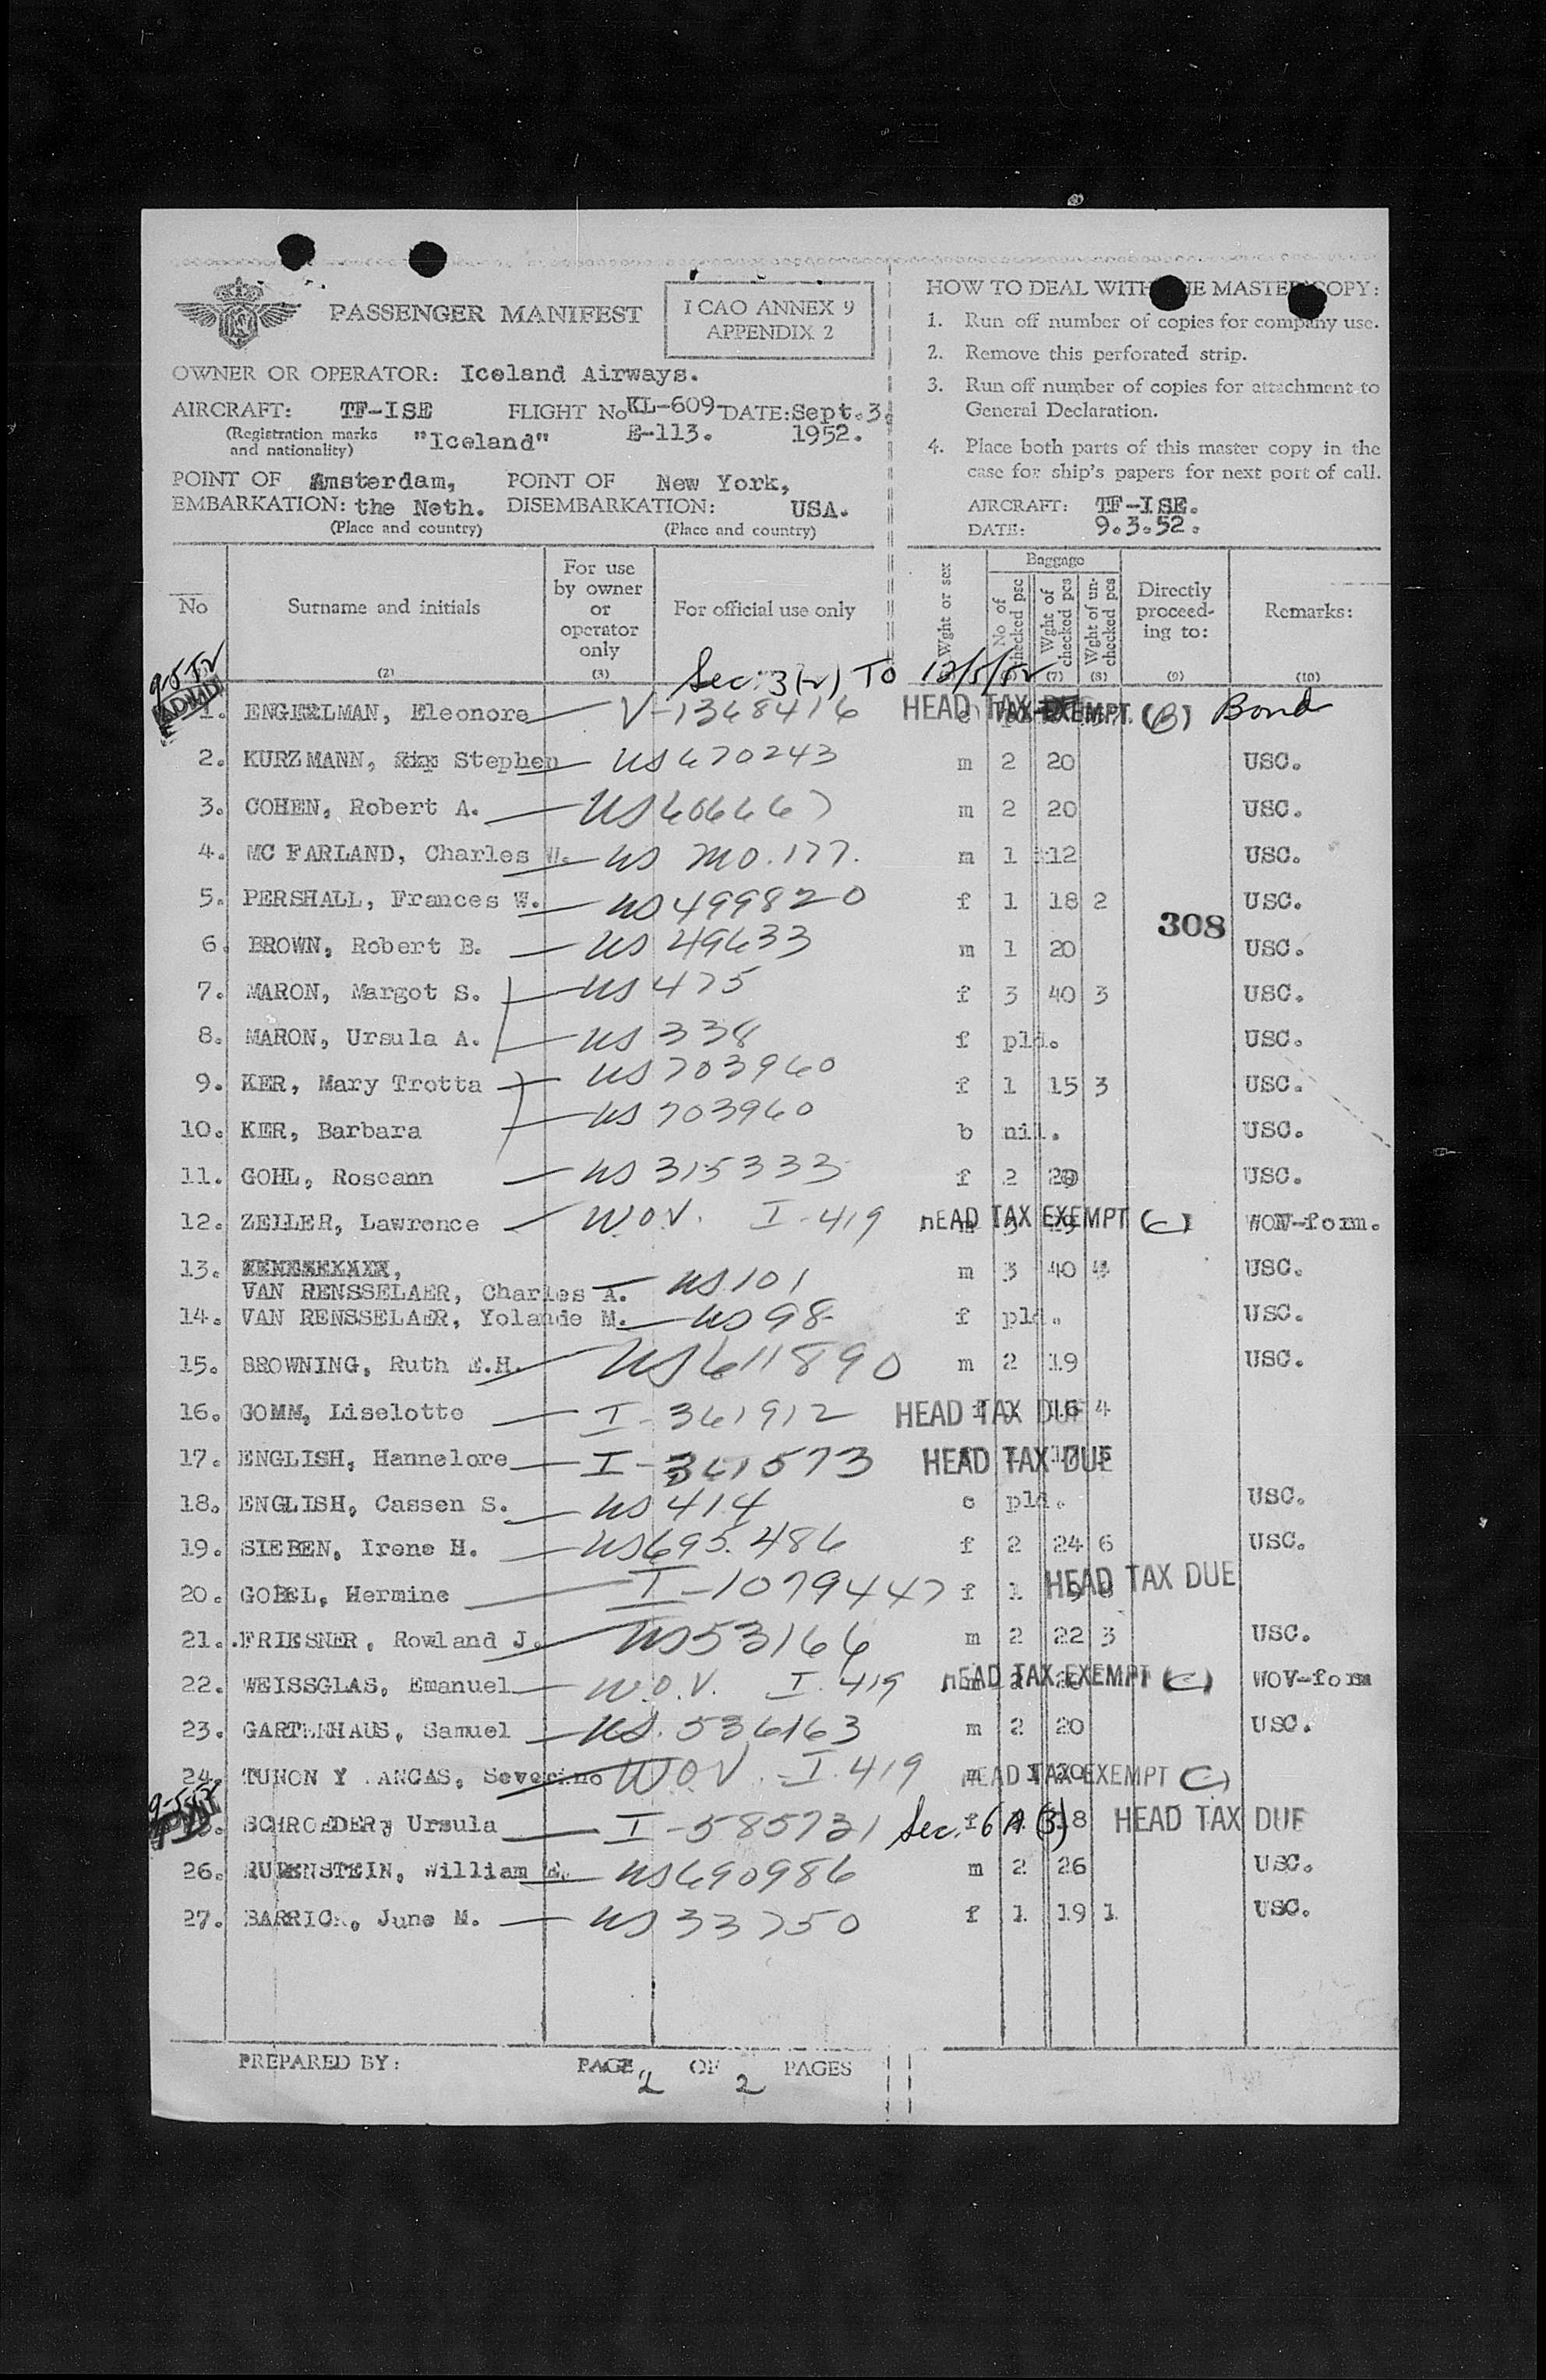 PASSENGER MANIFEST
I CAO ANNEX 9
APPENDIX 2
OWNER OR OPERATOR: Iceland Airways.
AIRCRAFT: TF-ISE FLIGHT No KL-609- DATE: Sept. 3.
(Registration marks and nationality) "Iceland" E-113. 1952.
POINT OF EMBARKATION: Amsterdam, the Neth. POINT OF DISEMBARKATION: New York, USA.
(Place and country) (Place and country)
HOW TO DEAL WITH MASTER COPY:
1. Run off number of copies for company use.
2. Remove this perforated strip.
3. Run off number of copies for attachment to
General Declaration.
4. Place both parts of this master copy in the
case for ship's papers for next port of call.
AIRCRAFT: TF-ISE.
DATE: 9.3.52.
No Surname and initials For use by owner or operator only For official use only Wght or sex Baggage No of checked psc Wght of checked pcs Wght of unchecked pcs Directly proceeding to: Remarks:
(2) (3) (7) (8) (9) (10)
9-5-52 Sec. 3(2) To 12/5/52
1. ENGEELMAN, Eleonore V-1368416 HEAD TAX EXEMPT (B) Bond
2. KURZMANN, Stephen US 670243 m 2 20 USC.
3. COHEN, Robert A. US 606667 m 2 20 USC.
4. MC FARLAND, Charles W. US MO. 177. m 1 12 USC.
5. PERSHALL, Frances W. US 499820 f 1 18 2 USC.
308
6. BROWN, Robert B. US 49633 m 1 20 USC.
7. MARON, Margot S. US 475 f 3 40 3 USC.
8. MARON, Ursula A. US 338 f pld. USC.
9. KER, Mary Trotta US 703960 f 1 15 3 USC.
10. KER, Barbara US 703960 b nil. USC.
11. GOHL, Roseann US 315333 f 2 20 USC.
12. ZEILER, Lawrence W.O.V. I-419 HEAD TAX EXEMPT (C) WOV-form.
13. VAN RENSSELAER, Charles A. US 101 m 3 40 4 USC.
14. VAN RENSSELAER, Yolande M. US 98 f pld. USC.
15. BROWNING, Ruth E.H. US 611890 m 2 19 USC.
16. GOMM, Liselotte I-361912 HEAD TAX DUE 16 4
17. ENGLISH, Hannelore I-361573 HEAD TAX DUE
18. ENGLISH, Cassen S. US 414 c pld. USC.
19. SIEBEN, Irene H. US 695486 f 2 24 6 USC.
20. GOBEL, Hermine I-1079447 f 1 HEAD TAX DUE
21. FRIESNER, Rowland J. US 53166 m 2 22 3 USC.
22. WEISSGLAS, Emanuel W.O.V. I.419 HEAD TAX EXEMPT (C) WOV-form
23. GARTENHAUS, Samuel US. 536163 m 2 20 USC.
24. TUNON Y ANGAS, Severino W.O.V. I.419 HEAD TAX EXEMPT (C)
9-5-52
SCHROEDER, Ursula I-585721 Sec. 6 A (3) f 18 HEAD TAX DUE
26. RUBENSTEIN, William E. US 690986 m 2 26 USC.
27. BARRICK, June M. US 33750 f 1 19 1 USC.
PREPARED BY: PAGE 2 OF 2 PAGES